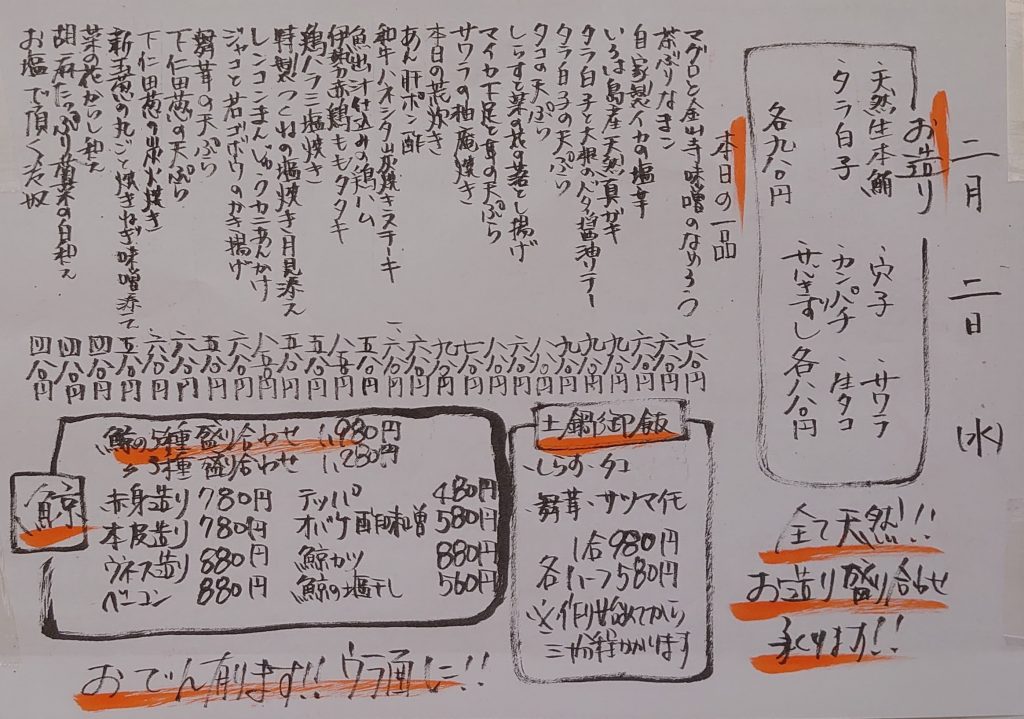 二月 二日 (水)
お造り
・天然生本鮪 ・穴子 ・サワラ
・タラ白子 ・カンパチ ・生タコ
各九八〇円 ・サバきずし 各八八〇円
全て天然!!
お造り盛り合わせ
承ります!!
本日の一品
マグロと金山寺味噌のなめろう 七八〇円
茶ぶりなまこ 六八〇円
自家製イカの塩辛 六八〇円
いろは島産天然真ガキ 九八〇円
タラ白子と大根のバタ醤油ソテー 九八〇円
タラ白子の天ぷら 九八〇円
タコの天ぷら 八八〇円
しらすと菜の花の落とし揚げ 六八〇円
マイカ下足と茸の天ぷら 八八〇円
サワラの柚庵焼き 七八〇円
本日の荒炊き 九八〇円
あん肝ポン酢 六八〇円
和牛ハネシタ炭焼きステーキ 一、八〇円
魚出汁仕込みの鶏ハム 五八〇円
伊勢赤鶏ももタタキ 八五〇円
鶏ハラミ塩焼き 五八〇円
特製つくねの塩焼き月見添え 五八〇円
レンコンまんじゅうカニあんかけ 八五〇円
ジャコと若ゴボウのかき揚げ 六八〇円
舞茸の天ぷら 五八〇円
下仁田葱の天ぷら 六八〇円
下仁田葱の炭火焼き 六八〇円
新玉葱の丸ごと焼きねぎ味噌添え 五八〇円
菜の花からし和え 四八〇円
胡麻たっぷり菊菜の白和え 四八〇円
お塩で頂く冷奴 四八〇円
土鍋御飯
・しらす・タコ
・舞茸・サツマイモ
1合980円
各ハーフ580円
※作り始めてから
三十分程かかります
鯨
鯨の5種盛り合わせ 1,980円
〃3種盛り合わせ 1,280円
赤身造り 780円 テッパ 480円
本皮造り 780円 オバケ酢味噌 580円
ウネス造り 880円 鯨カツ 880円
ベーコン 880円 鯨の塩干し 560円
おでん有ります!!ウラ面に!!